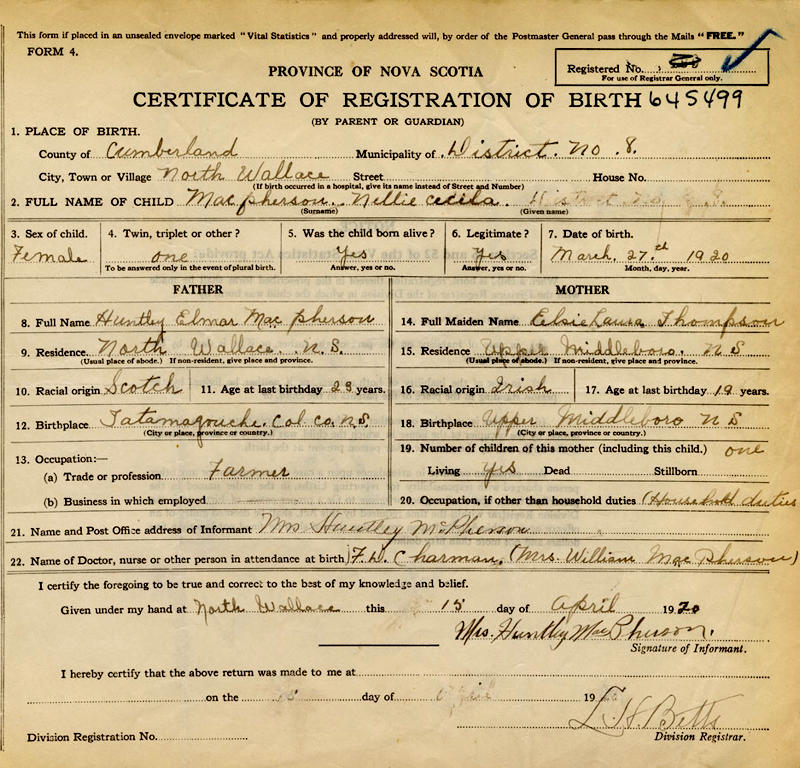 This form if placed in an unsealed envelope marked "Vital Statistics" and properly addressed will, by order of the Postmaster General pass through the Mails "FREE."
FORM 4.
Registered No.
For use of Registrar General only.
PROVINCE OF NOVA SCOTIA
CERTIFICATE OF REGISTRATION OF BIRTH 645499
(BY PARENT OR GUARDIAN)
1. PLACE OF BIRTH.
County of Cumberland Municipality of District. No. 8.
City, Town or Village North Wallace Street House No.
(If birth occurred in a hospital, give its name instead of Street and Number)
2. FULL NAME OF CHILD Mac pherson. Nellie Cecila.
(Surname) (Given name)
3. Sex of child. 4. Twin, triplet or other? 5. Was the child born alive? 6. Legitimate? 7. Date of birth.
Female one Yes Yes March. 27.th 1920
To be answered only in the event of plural birth. Answer, yes or no. Answer, yes or no. Month, day, year.
FATHER MOTHER
8. Full Name Huntley Elmar Mac pherson 14. Full Maiden Name Elsie Laura Thompson
9. Residence North Wallace. N.S. 15. Residence Upper Middleboro. N S
(Usual place of abode.) If non-resident, give place and province. (Usual place of abode.) If non-resident, give place and province.
10. Racial origin Scotch 11. Age at last birthday 23 years. 16. Racial origin Irish 17. Age at last birthday 19 years.
12. Birthplace Tatamagouche. Col co. N.S. 18. Birthplace Upper Middleboro N S
(City or place, province or country.) (City or place, province or country.)
13. Occupation:— 19. Number of children of this mother (including this child.) one
(a) Trade or profession Farmer Living yes Dead Stillborn
(b) Business in which employed 20. Occupation, if other than household duties (Household duties
21. Name and Post Office address of Informant Mrs Huntley McPherson
22. Name of Doctor, nurse or other person in attendance at birth) F. D. Charman. (Mrs. William Mac Pherson)
I certify the foregoing to be true and correct to the best of my knowledge and belief.
Given under my hand at North Wallace this 15 day of April 1920
Mrs. Huntley MacPherson.
Signature of Informant.
I hereby certify that the above return was made to me at
on the 15 day of April 19
L. H. Betts
Division Registration No. Division Registrar.